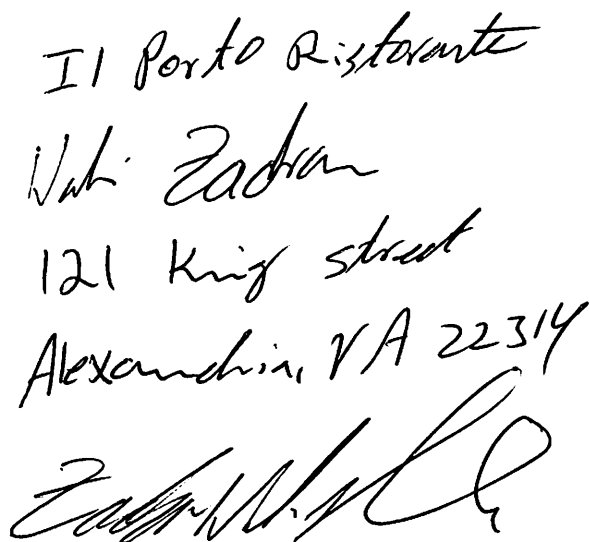 Il Porto Ristorante
Wali Zadran
121 King street
Alexandria, VA 22314